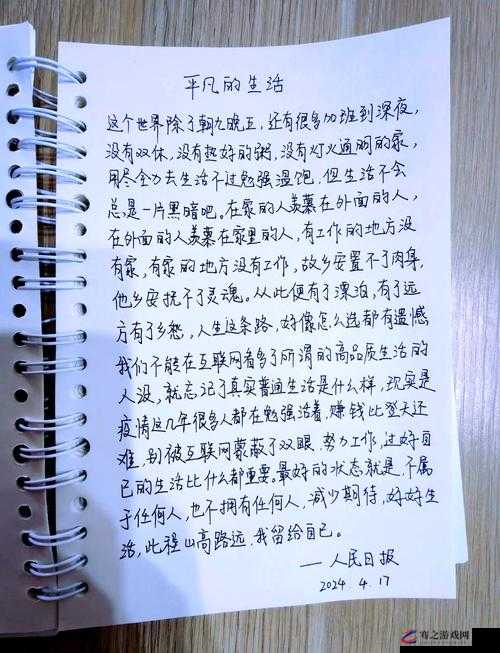 平凡的生活
这个世界除了朝九晚五,还有很多加班到深夜,
没有双休,没有热好的粥,没有灯火通明的家,
用尽全力去生活不过勉强温饱.但生活不会
总是一片黑暗吧。在家的人羡慕在外面的人,
在外面的人羡慕在家里的人,有工作的地方没
有家,有家的地方没有工作,故乡安置不了肉身,
他乡安抚不了灵魂。从此便有了漂泊,有了远
方有了乡愁,人生这条路,好像怎么选都有遗憾
我们不能在互联网看多了所谓的高品质生活的
人设,就忘记了真实普通生活是什么样,现实是
疫情这几年很多人都在勉强活着,赚钱比登天还
难,别被互联网蒙蔽了双眼.努力工作,过好自
己的生活比什么都重要。最好的状态就是.不属
于任何人,也不拥有任何人,减少期待,好好生
活,此程山高路远,我留给自己。
——人民日报
2024.4.17
骞之游戏网